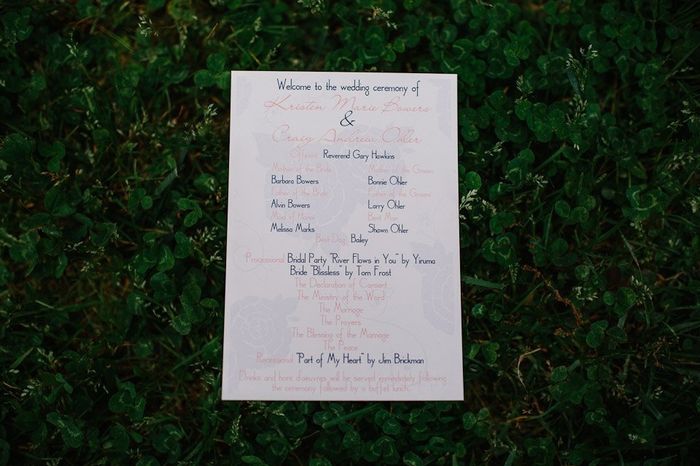 Welcome to the wedding ceremony of
Kristen Marie Bowers
&
Craig Andrew Ohler
Officiant Reverend Gary Hawkins
Mother of the Bride Mother of the Groom
Barbara Bowers Bonnie Ohler
Father of the Bride Father of the Groom
Alvin Bowers Larry Ohler
Maid of Honor Best Man
Melissa Marks Shawn Ohler
Best Dog Bailey
Processional Bridal Party "River Flows in You" by Yiruma
Bride "Blissless" by Tom Frost
The Declaration of Consent
The Ministry of the Word
The Marriage
The Prayers
The Blessing of the Marriage
The Peace
Recessional "Part of My Heart" by Jim Brickman
Drinks and hors d'oeuvres will be served immediately following
the ceremony followed by a buffet lunch.